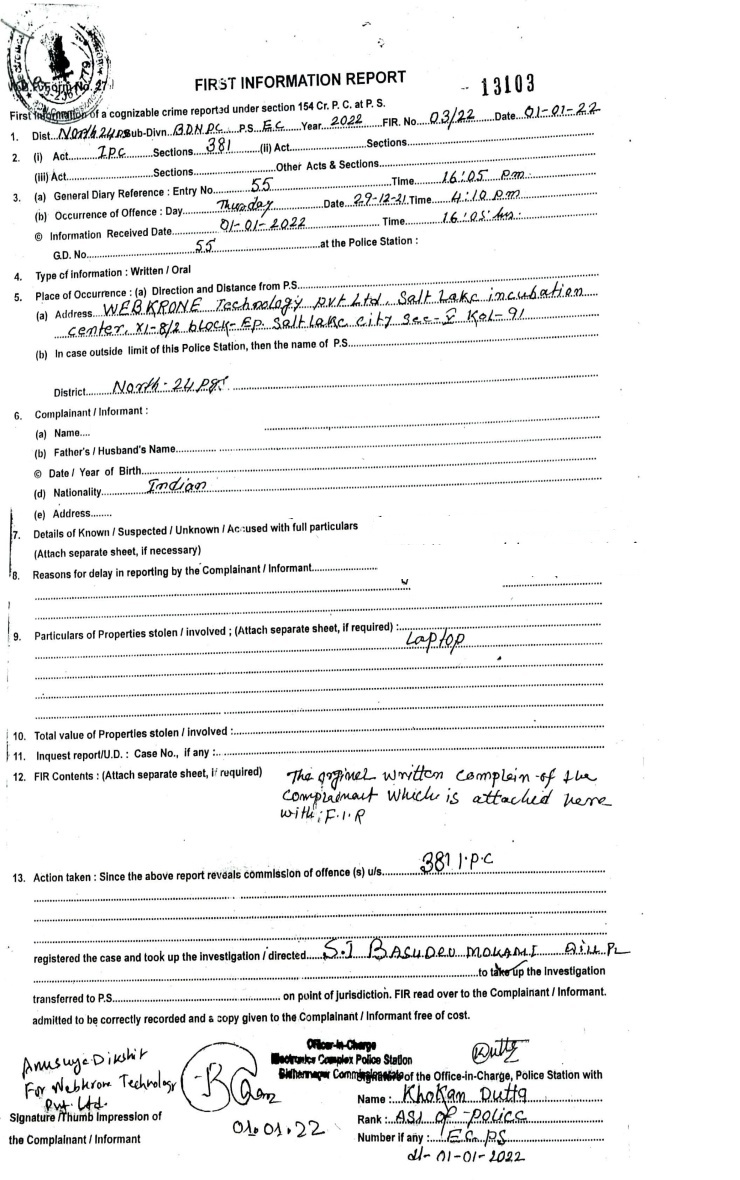 W.B. Form No. 27
FIRST INFORMATION REPORT
13103
First Information of a cognizable crime reported under section 154 Cr. P. C. at P. S.
1. Dist. North 24 pgs Sub-Divn. BDN PC P.S. EC Year 2022 FIR. No. 03/22 Date 01-01-22
2. (i) Act IPC Sections 381 (ii) Act Sections
(iii) Act Sections Other Acts & Sections
3. (a) General Diary Reference : Entry No. 55 Time 16:05 pm.
(b) Occurrence of Offence : Day Thusday Date 29-12-21 Time 4:10 pm
© Information Received Date 01-01-2022 Time 16:05 hrs.
G.D. No. 55 at the Police Station :
4. Type of information : Written / Oral
5. Place of Occurrence : (a) Direction and Distance from P.S.
(a) Address WEBKRONE Technology pvt Ltd. Salt Lake incubation
center, XI-8/2 block-Ep. Salt Lake city Sec-V Kol-91
(b) In case outside limit of this Police Station, then the name of P.S.
District North-24 pgs.
6. Complainant / Informant :
(a) Name....
(b) Father's / Husband's Name
© Date / Year of Birth
(d) Nationality Indian
(e) Address........
7. Details of Known / Suspected / Unknown / Accused with full particulars
(Attach separate sheet, if necessary)
8. Reasons for delay in reporting by the Complainant / Informant
9. Particulars of Properties stolen / involved ; (Attach separate sheet, if required) :
Laptop
10. Total value of Properties stolen / involved :
11. Inquest report/U.D. : Case No., if any :
12. FIR Contents : (Attach separate sheet, if required) The orginel written complein of the
Complainant Which is attached here
with; F.I.R
13. Action taken : Since the above report reveals commission of offence (s) u/s. 381 I.P.C
registered the case and took up the investigation / directed S.I BASUDEV
to take up the Investigation
transferred to P.S. on point of jurisdiction. FIR read over to the Complainant / Informant.
admitted to be correctly recorded and a copy given to the Complainant / Informant free of cost.
Anusuya Dikshit
For Webkrone Technology
Pvt. Ltd.
Signature /Thumb Impression of
the Complainant / Informant
01.01.22
Officer-in-Charge
Electronics Complex Police Station
Bidhannagar Commissionerate
Signature of the Office-in-Charge, Police Station with
KDutta
Name : Khokan Dutta
Rank : ASI of Police
Number if any : EC PS
dt- 01-01-2022